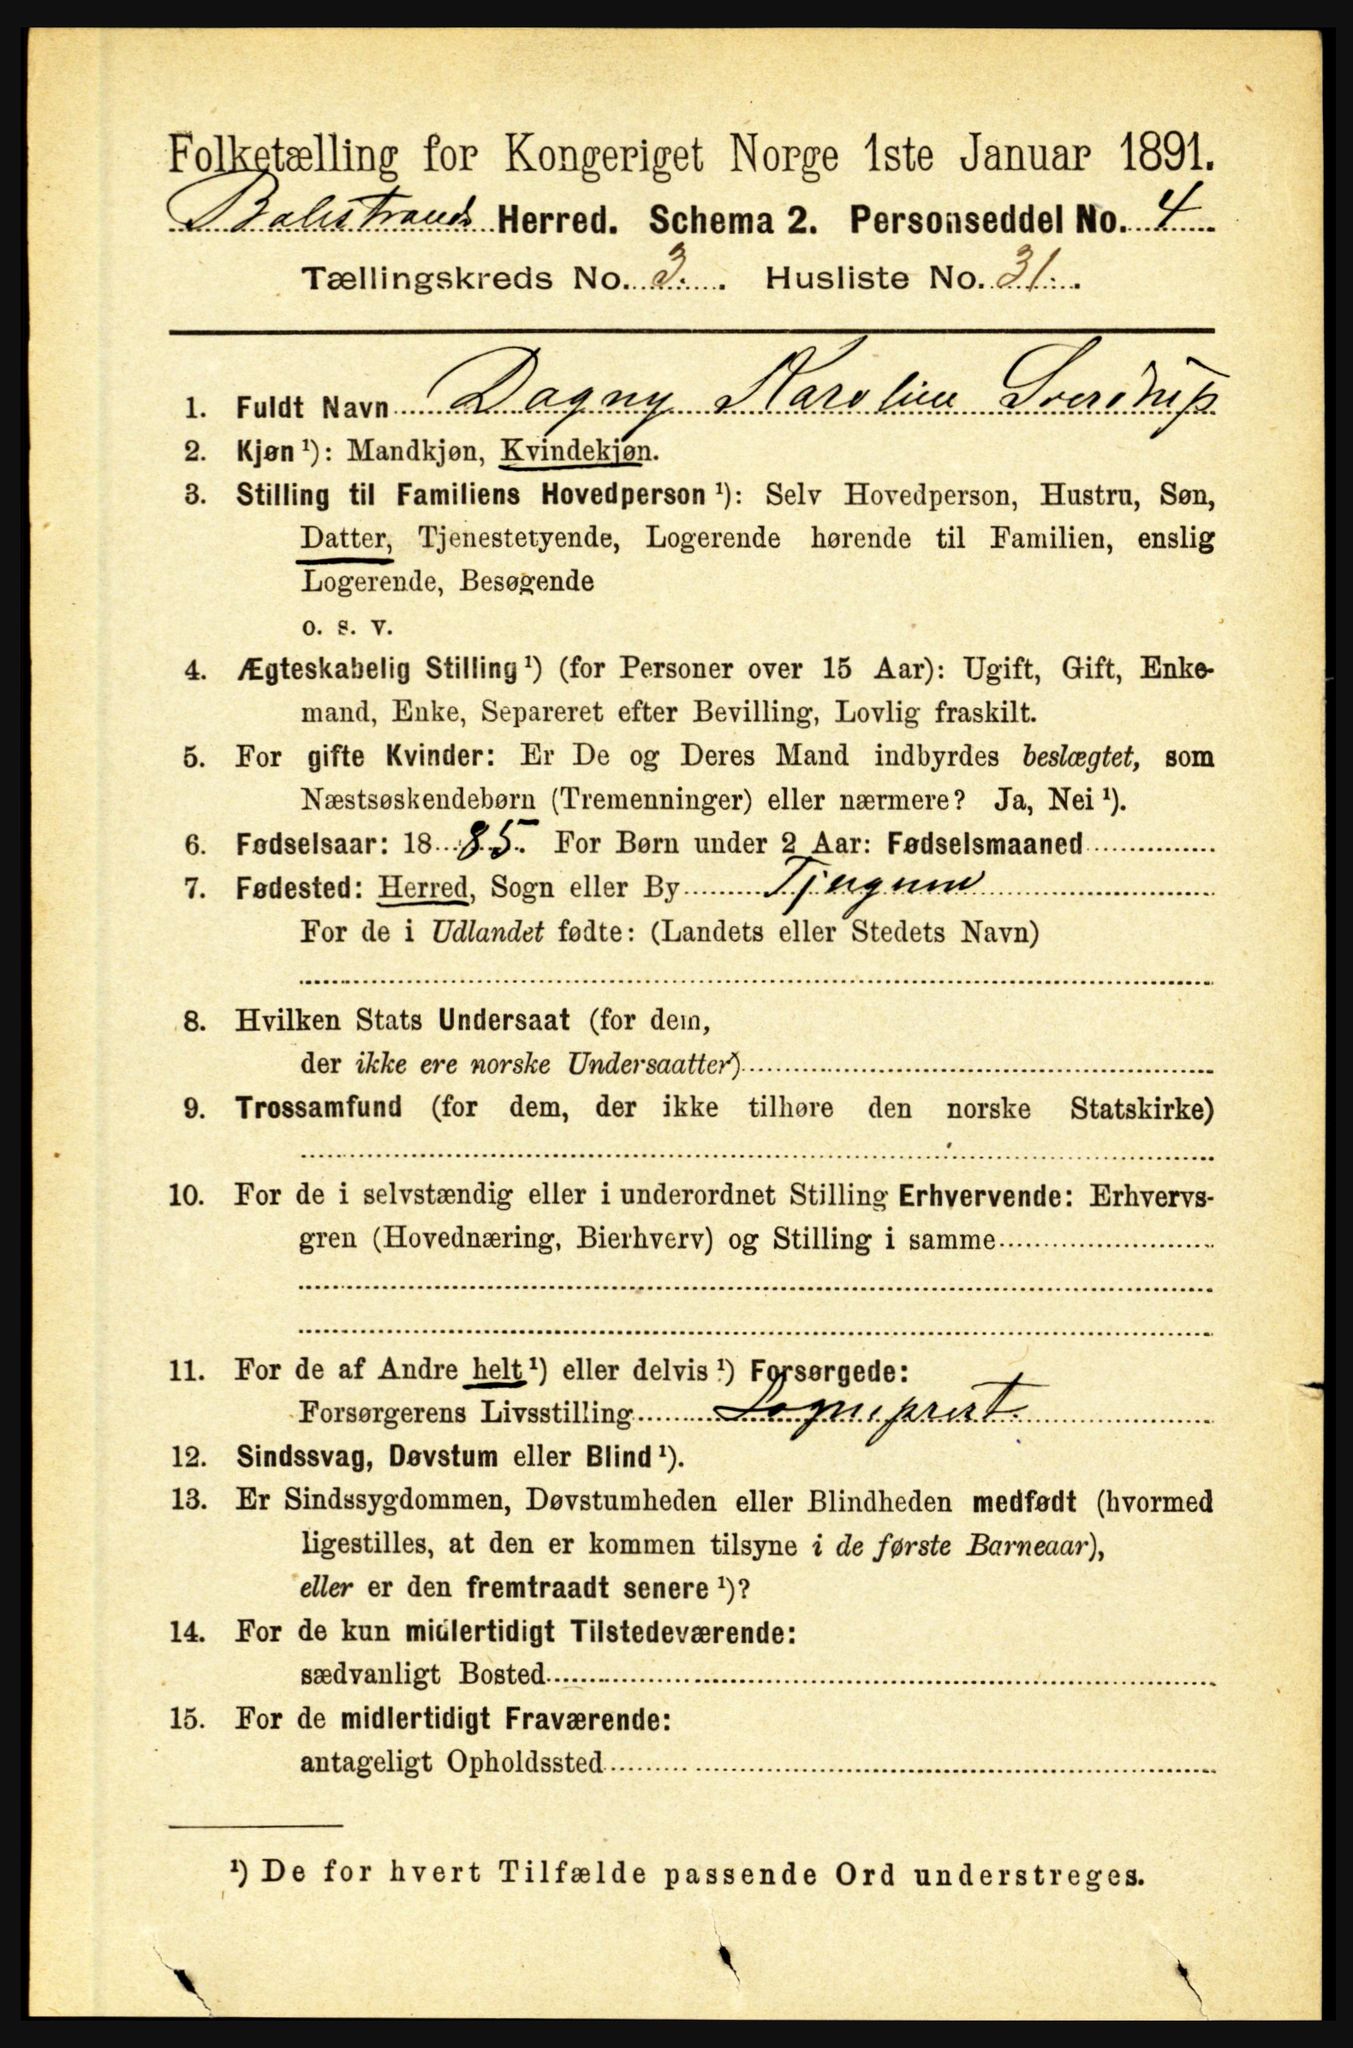 Folketælling for Kongeriget Norge 1ste Januar 1891.
Balestrands Herred. Schema 2. Personseddel No. 4
Tællingskreds No. 3. Husliste No. 31.
1. Fuldt Navn Dagny Karoline Sverdrup
2. Kjøn ¹): Mandkjøn, Kvindekjøn.
3. Stilling til Familiens Hovedperson ¹): Selv Hovedperson, Hustru, Søn,
Datter, Tjenestetyende, Logerende hørende til Familien, enslig
Logerende, Besøgende
o. s. v.
4. Ægteskabelig Stilling ¹) (for Personer over 15 Aar): Ugift, Gift, Enke-
mand, Enke, Separeret efter Bevilling, Lovlig fraskilt.
5. For gifte Kvinder: Er De og Deres Mand indbyrdes beslægtet, som
Næstsøskendebørn (Tremenninger) eller nærmere? Ja, Nei ¹).
6. Fødselsaar: 1885. For Børn under 2 Aar: Fødselsmaaned
7. Fødested: Herred, Sogn eller By Tjugum
For de i Udlandet fødte: (Landets eller Stedets Navn)
8. Hvilken Stats Undersaat (for dem,
der ikke ere norske Undersaatter)
9. Trossamfund (for dem, der ikke tilhøre den norske Statskirke)
10. For de i selvstændig eller i underordnet Stilling Erhvervende: Erhvervs-
gren (Hovednæring, Bierhverv) og Stilling i samme
11. For de af Andre helt ¹) eller delvis ¹) Forsørgede:
Forsørgerens Livsstilling Sogneprest.
12. Sindssvag, Døvstum eller Blind ¹).
13. Er Sindssygdommen, Døvstumheden eller Blindheden medfødt (hvormed
ligestilles, at den er kommen tilsyne i de første Barneaar),
eller er den fremtraadt senere ¹)?
14. For de kun midlertidigt Tilstedeværende:
sædvanligt Bosted
15. For de midlertidigt Fraværende:
antageligt Opholdssted
¹) De for hvert Tilfælde passende Ord understreges.